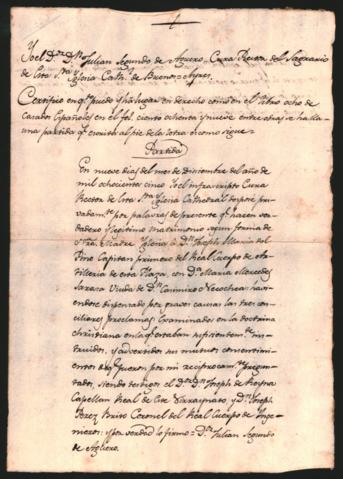 Yo el D.or D.n Julian Segundo de Aguero Cura Rector del Sagrario
de esta S.ta Iglesia Cath.l de Buenos-Ayres.
Certifico en q.to puedo y ha lugar en derecho como en el libro ocho de
Casados Españoles en el fol. ciento ochenta y nueve entre otras se halla
una partida q.e escrita al pie de la letra es como sigue
Partida
En nueve dias del mes de Diciembre del año de
mil ochocientos cinco Yo el infrascripto Cura
Rector de esta S.ta Iglesia Cathedral desposé pri
vadam.te por palabras de presente q.e hacen ver
dadero y legitimo matrimonio segun forma de
N.tra S.ta Madre Iglesia à D.n Joseph Maria del
Pino Capitan primero del Real Cuerpo de Ar
tilleria de esta Plaza, con D.a Maria Mercedes
Sarasa Viuda de D.n Casimiro Necochea: havi
endose dispensado por graves causas las tres con
ciliares proclamas: Examinados en la doctrina
christiana en la q.e estaban suficientem.te ins
truidos, y advertidos sus mutuos consentimi
entos q.e fueron por mi reciprocam.te pregun
tados, siendo testigos el D.or D.n Joseph de Reyna
Capellan Real de este Virreynato, y D.n Joseph
Perez Brito Coronel del Real Cuerpo de Inge
nieros: y por verdad lo firmo = D.n Julian Segundo
de Aguero.